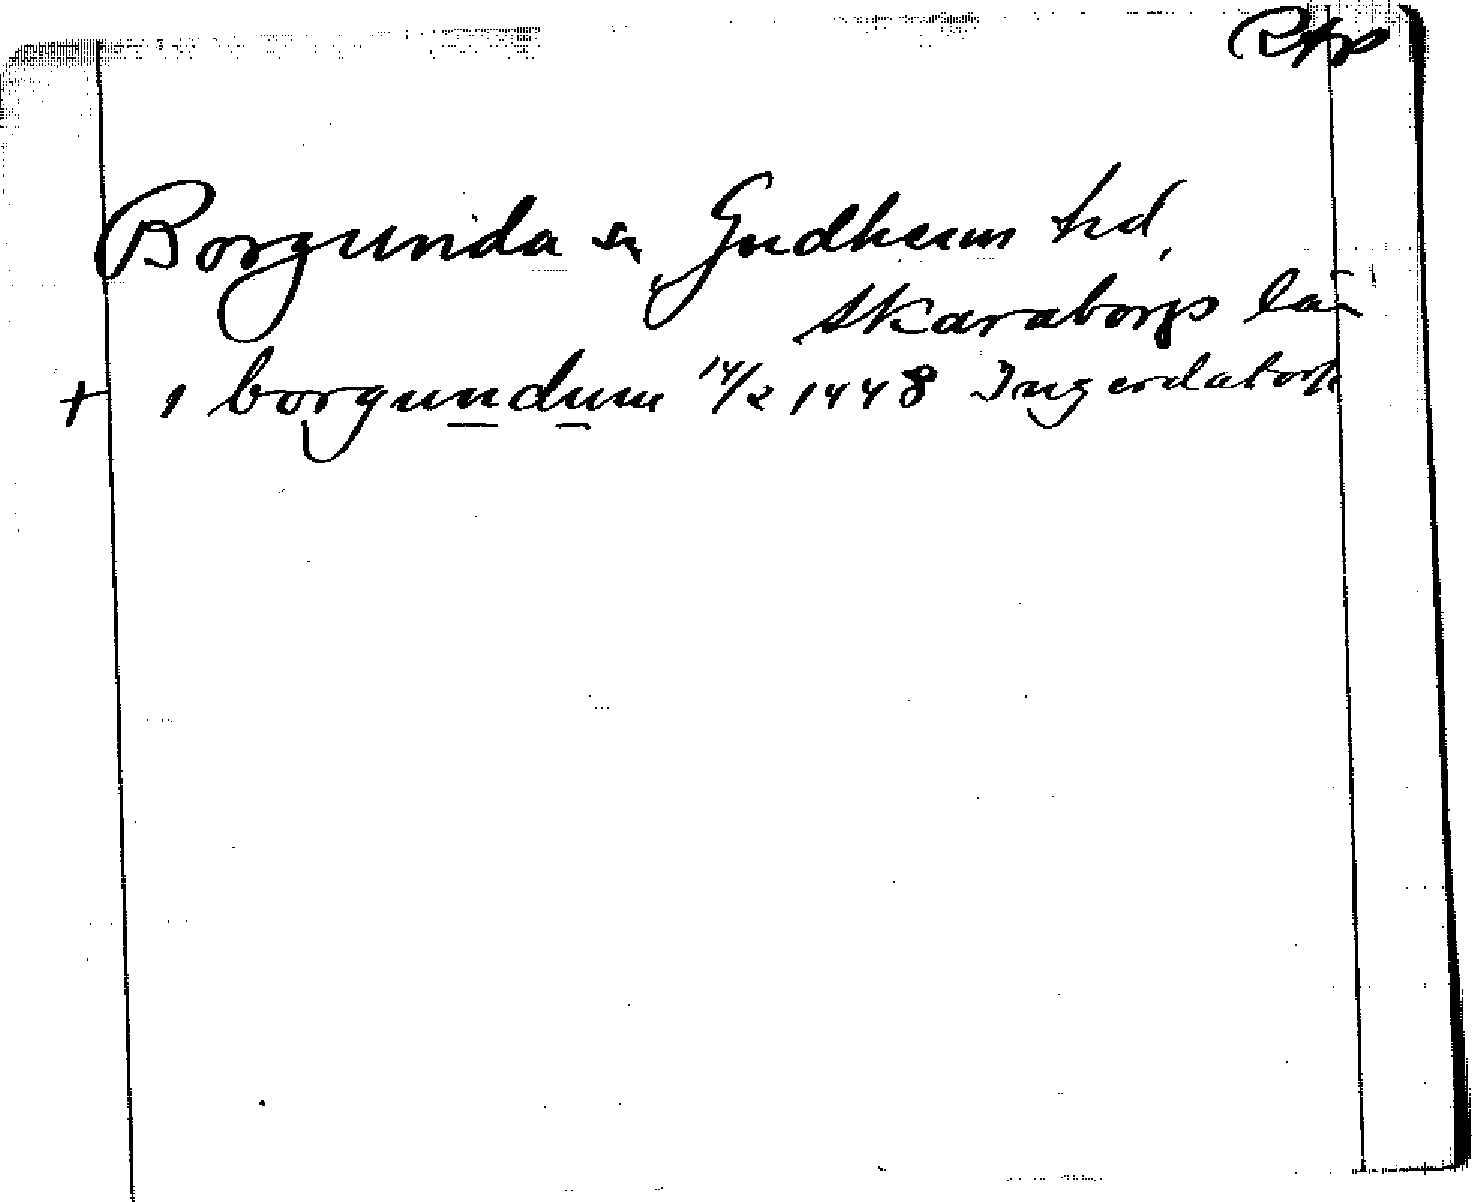 Rap
Borgunda sn Gudhems hd,
Skaraborgs län
+ i borgundum 14/2 1448 Ingerdatorp